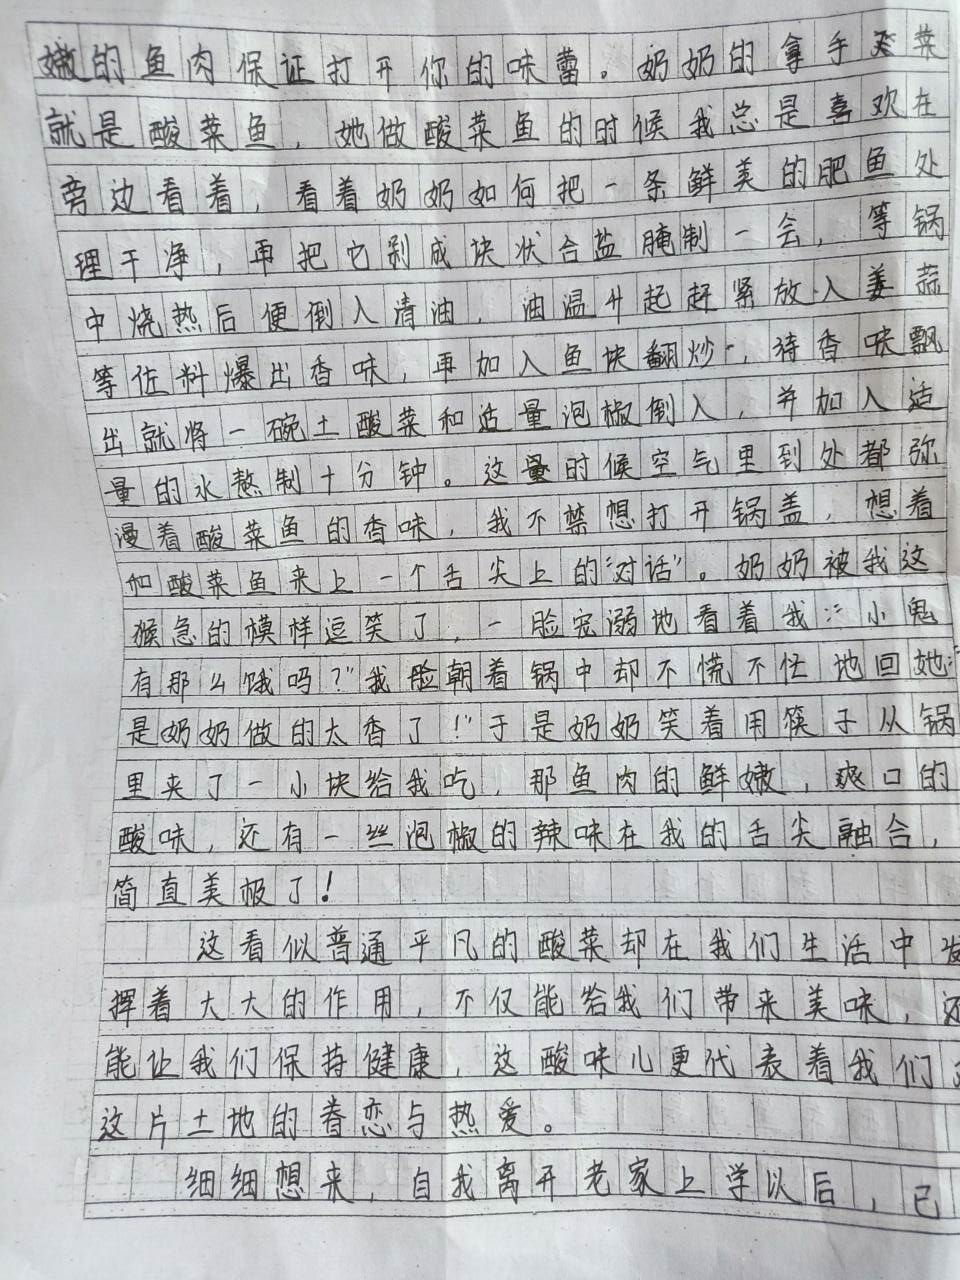 嫩的鱼肉保证打开你的味蕾。奶奶的拿手菜
就是酸菜鱼，她做酸菜鱼的时候我总是喜欢在
旁边看着，看着奶奶如何把一条鲜美的肥鱼处
理干净，再把它剁成块状合盐腌制一会，等锅
中烧热后便倒入清油，油温升起赶紧放入姜蒜
等佐料爆出香味，再加入鱼块翻炒，待香味飘
出就将一碗土酸菜和适量泡椒倒入，并加入适
量的水熬制十分钟。这时候空气里到处都弥
漫着酸菜鱼的香味，我不禁想打开锅盖，想着
和酸菜鱼来上一个舌尖上的“对话”。奶奶被我这
猴急的模样逗笑了，一脸宠溺地看着我：“小鬼
有那么饿吗？”我脸朝着锅中却不慌不忙地回她：“
是奶奶做的太香了！”于是奶奶笑着用筷子从锅
里夹了一小块给我吃，那鱼肉的鲜嫩，爽口的
酸味，还有一丝泡椒的辣味在我的舌尖融合，
简直美极了！
这看似普通平凡的酸菜却在我们生活中发
挥着大大的作用，不仅能给我们带来美味，还
能让我们保持健康，这酸味儿更代表着我们
这片土地的眷恋与热爱。
细细想来，自我离开老家上学以后，已